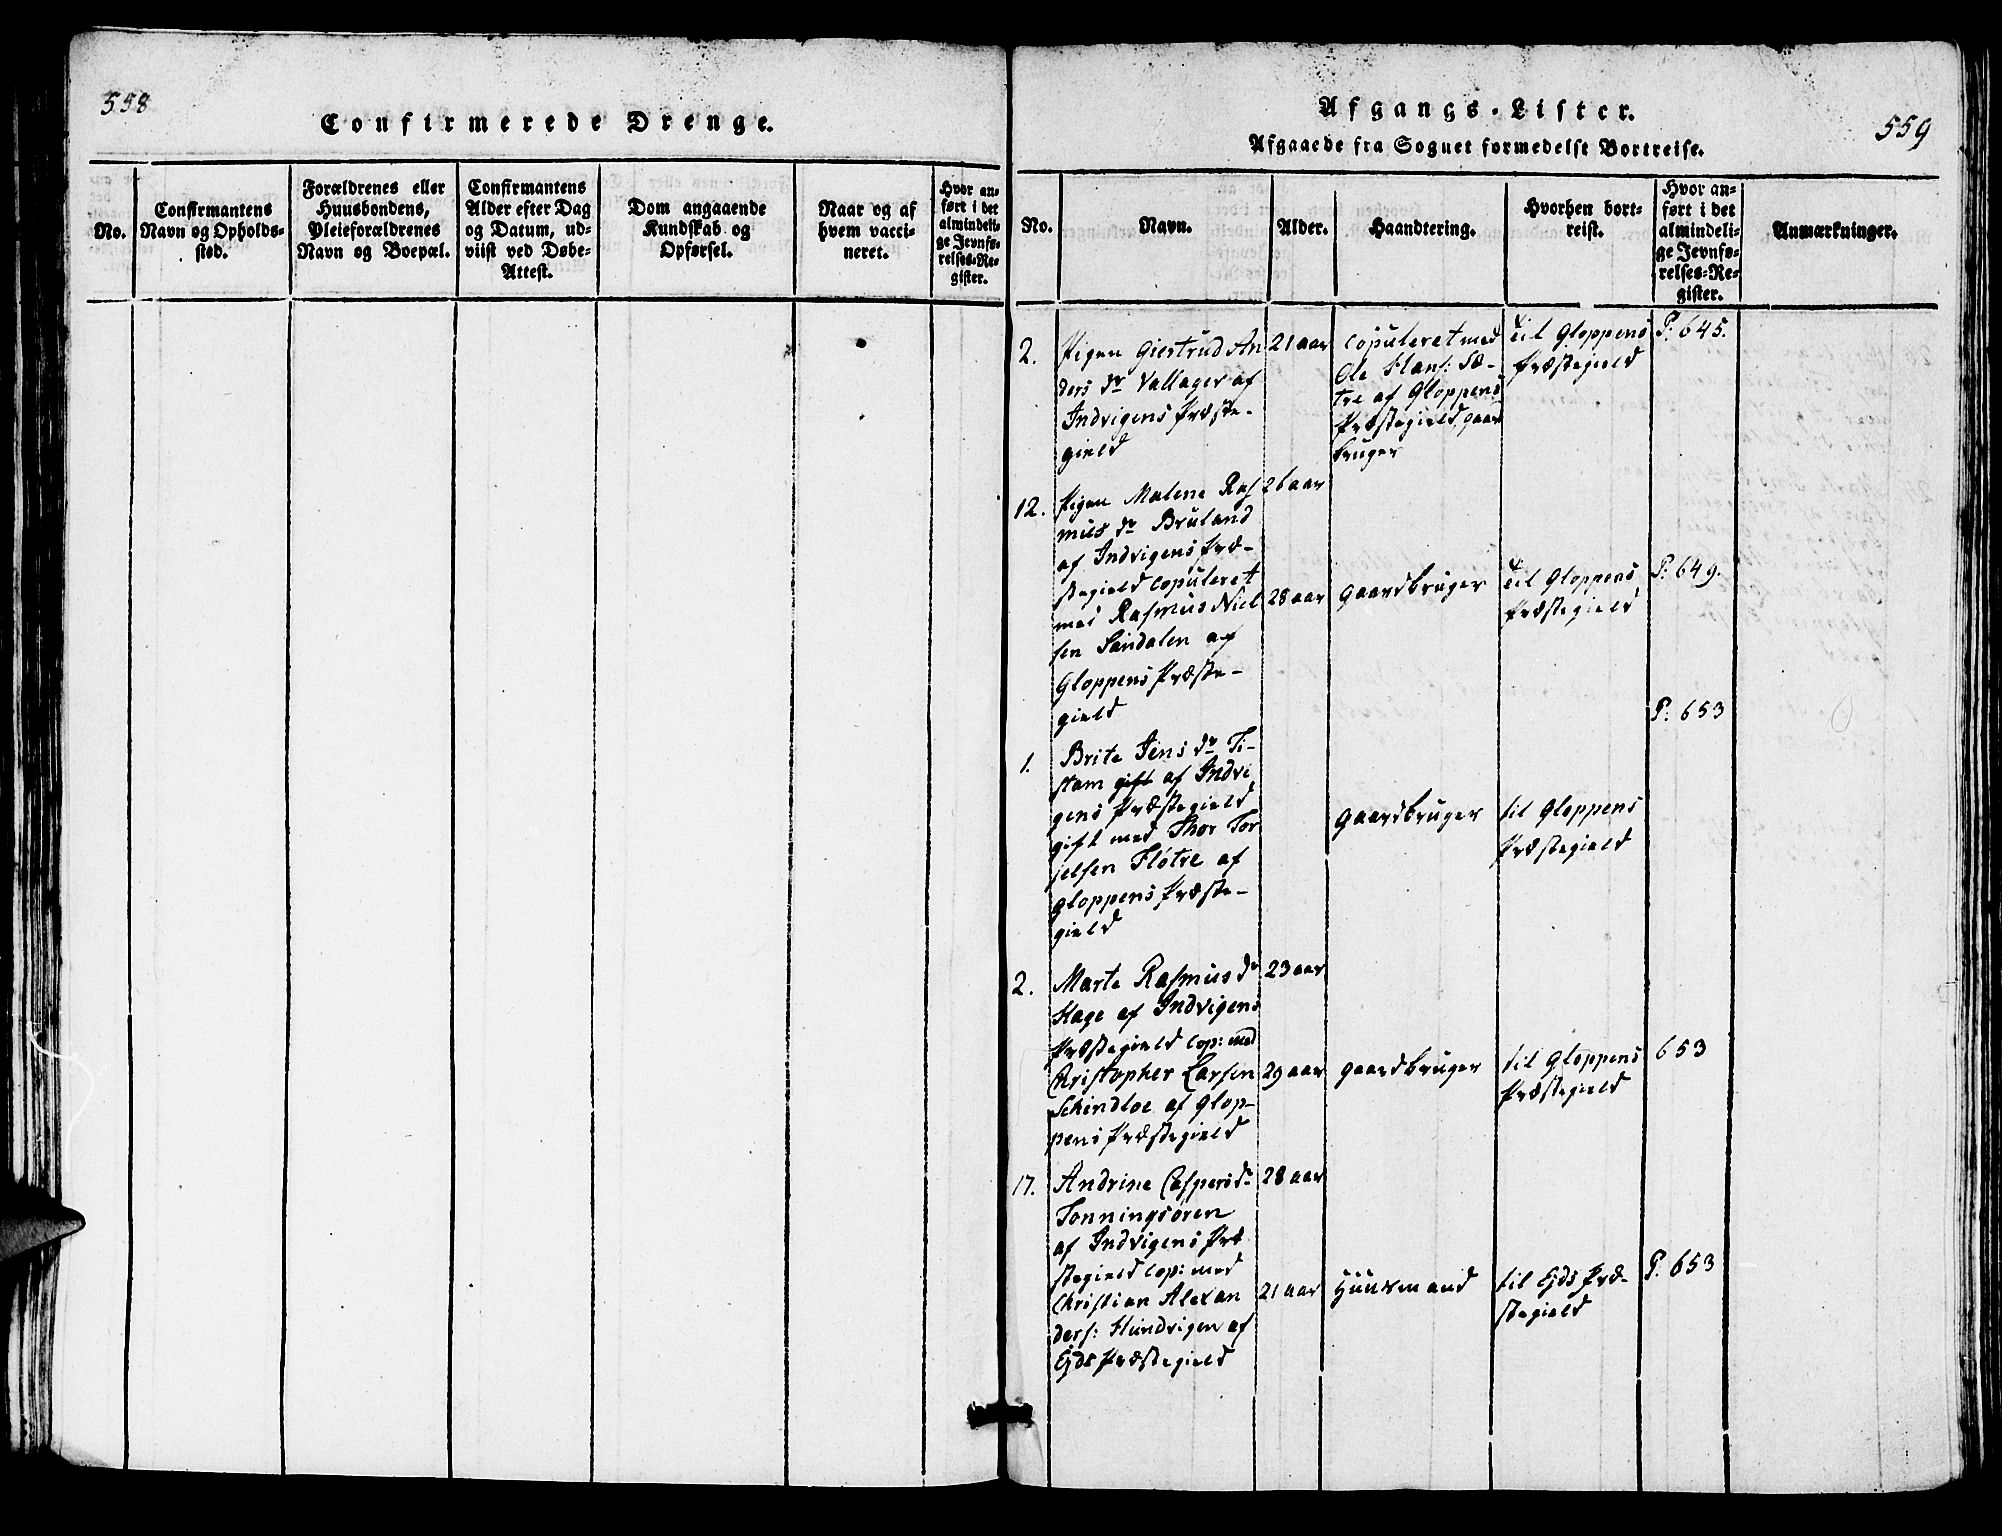 558
Confirmerede Drenge.
No.
Confirmantens
Navn og Opholds-
sted.
Forældrenes eller
Huusbondens,
Pleieforældrenes
Navn og Boepæl.
Confirmantens
Alder efter Dag
og Datum, ud-
viist ved Døbe-
Attest.
Dom angaaende
Kundskab og
Opførsel.
Naar og af
hvem vacci-
neret.
Hvor an-
ført i det
almindeli-
ge Jevnfø-
relses-Re-
gister.
Afgangs-Lister.
559
Afgaaede fra Sognet formedelst Bortreise.
No.
Navn.
Alder.
Haandtering.
Hvorhen bort-
reist.
Hvor an-
ført i det
almindeli-
ge Jevnfø-
relses-Re-
gister.
Anmærkninger.
2.
Pigen Giertrud An
ders dr Vallager af
Indvigens Præste-
gield
21 aar
copuleret med
Ole Hans: Sæ-
tre af Gloppens
Præstegield, gaar
bruger
til Gloppens
Præstegield
P. 645.
12.
Pigen Malene Ras
mus dr Bruland
af Indvigens Præ-
stegield copuleret
med Rasmus Niel
sen Sandalen af
Gloppens Præste-
gield
26 aar
28 aar
gaardbruger
til Gloppens
Præstegield
P. 649.
1.
Brite Jens dr Ti-
stam gift af Indvi
gens Præstegield
gift med Thor Tor
jelsen Fløtre af
Gloppens Præste-
gield
gaardbruger
til Gloppens
Præstegield
P. 653
2.
Marte Rasmus dr
Hage af Indvigens
Præstegield cop: med
Christopher Larsen
Skindloe af Glop-
pens Præstegield
23 aar
29 aar
gaardbruger
til Gloppens
Præstegield
653
17.
Andrine Caspers dr
Tonningsøren
af Indvigens Præ
stegield cop: med
Christian Alexan
ders: Hundvigen af
Ejds Præstegield
28 aar
21 aar
Huusmand
til Ejds Præ-
stegield
P. 653